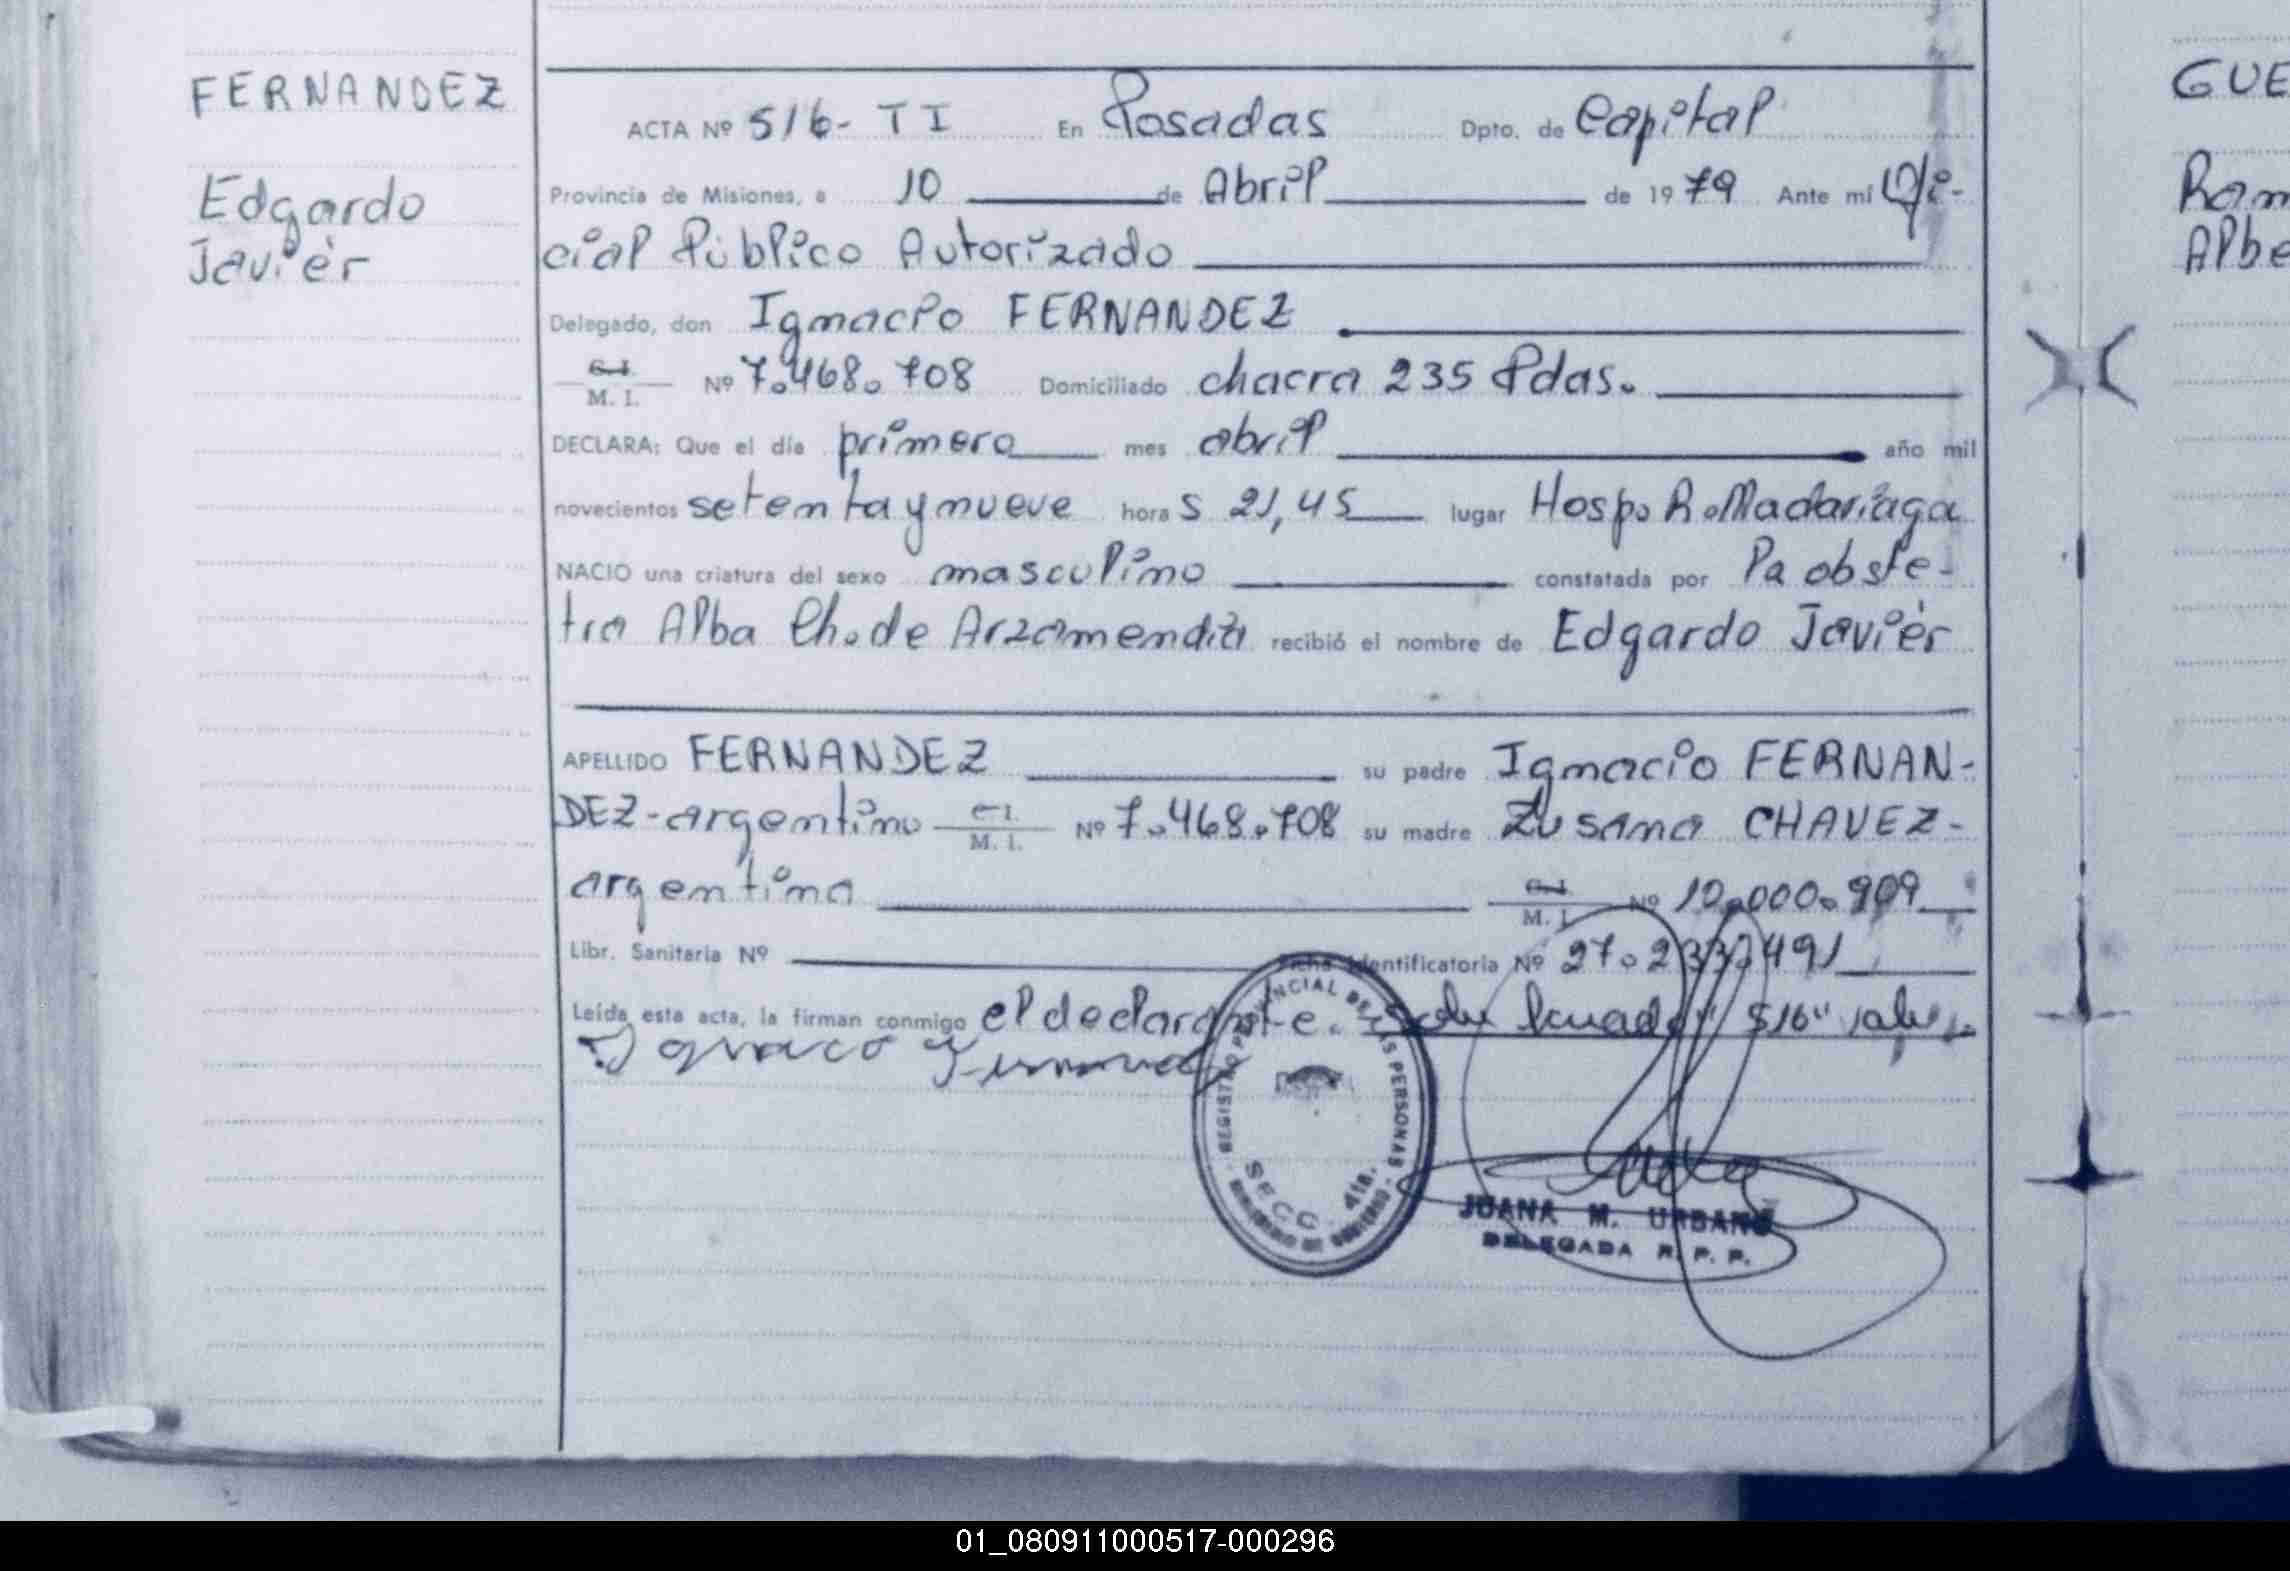 FERNANDEZ
Edgardo
Javier
ACTA Nº 516- TI En Posadas Dpto. de Capital
Provincia de Misiones, a 10 de Abril de 1979 Ante mí Ofi-
cial Público Autorizado
Delegado, don Ignacio FERNANDEZ
C. I.
M. I. Nº 7.468.708 Domiciliado chacra 235 Pdas.
DECLARA: Que el día primero mes abril año mil
novecientos setenta y nueve horas 21,45 lugar Hosp. R. Madariaga
NACIO una criatura del sexo masculino constatada por la obste-
tra Alba Ch. de Arzamendia recibió el nombre de Edgardo Javier
APELLIDO FERNANDEZ su padre Ignacio FERNAN-
DEZ-argentino C. I. M. I. Nº 7.468.708 su madre Zusana CHAVEZ-
argentina C. I. M. I. Nº 10.000.909
Libr. Sanitaria Nº Ficha Identificatoria Nº 27.233.491
Leída esta acta, la firman conmigo el declarante. "516" vale.
Ignacio Fernandez
REGISTRO PROVINCIAL DE LAS PERSONAS
SECC. 4ta.
JUANA M. URBANO
DELEGADA R. P. P.
GUE
Ram
Albe
01_080911000517-000296